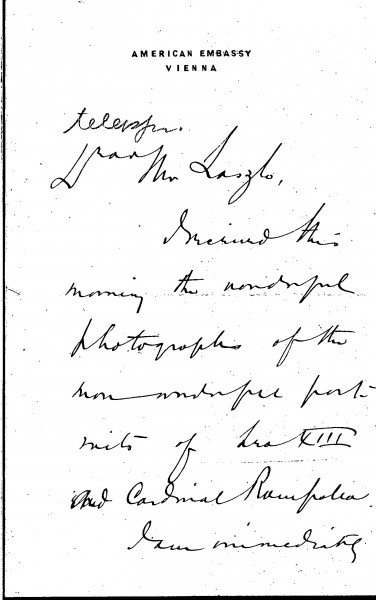 AMERICAN EMBASSY
VIENNA
Dear Mr Laszlo,
I received this
morning the wonderful
photographs of the
more wonderful port-
raits of Leo XIII
and Cardinal Rampolla.
I am immediately